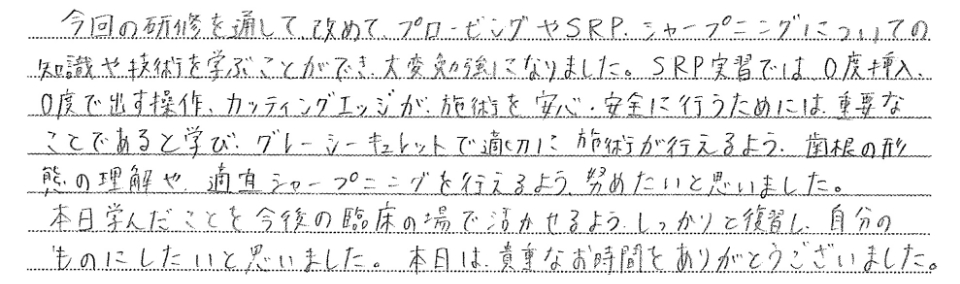 今回の研修を通して、改めて、プロービングやSRP、シャープニングについての
知識や技術を学ぶことができ、大変勉強になりました。SRP実習では、0度挿入、
0度で出す操作、カッティングエッジが、施術を安心・安全に行うためには、重要な
ことであると学び、グレーシーキュレットで適切に施術が行えるよう、歯根の形
態の理解や、適宜シャープニングを行えるよう、努めたいと思いました。
本日学んだことを今後の臨床の場で活かせるよう、しっかりと復習し、自分の
ものにしたいと思いました。本日は、貴重なお時間をありがとうございました。